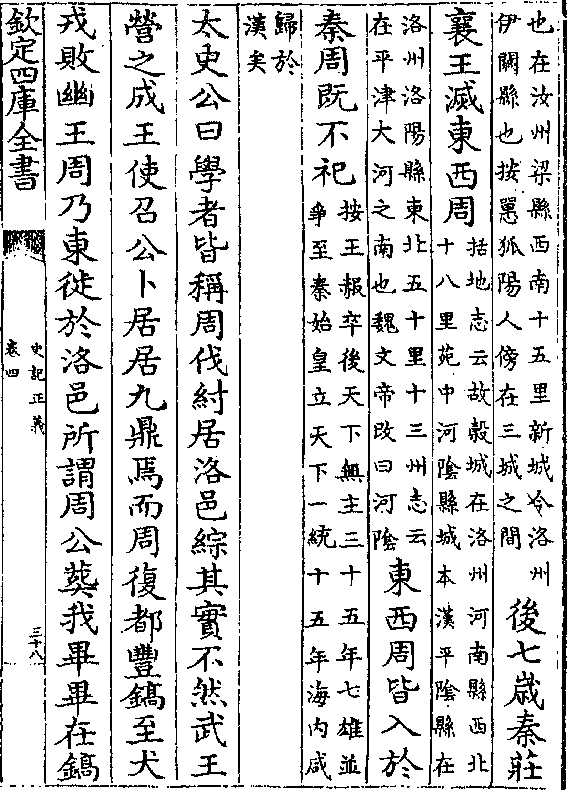 也在汝州梁縣西南十五里新城今洛州
伊闕縣也按𢠸狐陽人傍在三城之間
後七歲秦莊
襄王滅東西周
括地志云故穀城在洛州河南縣西北
十八里苑中河陰縣城本漢平陰縣在
洛州洛陽縣東北五十里十三州志云
在平津大河之南也魏文帝改曰河陰
東西周皆入於
秦周既不祀
按王赧卒後天下無主三十五年七雄並
爭至秦始皇立天下一統十五年海內咸
歸於
漢矣
太史公曰學者皆稱周伐紂居洛邑綜其實不然武王
營之成王使召公卜居居九鼎焉而周復都豐鎬至犬
戎敗幽王周乃東徙於洛邑所謂周公葬我畢畢在鎬
欽定四庫全書
史記正義
卷四
三十八